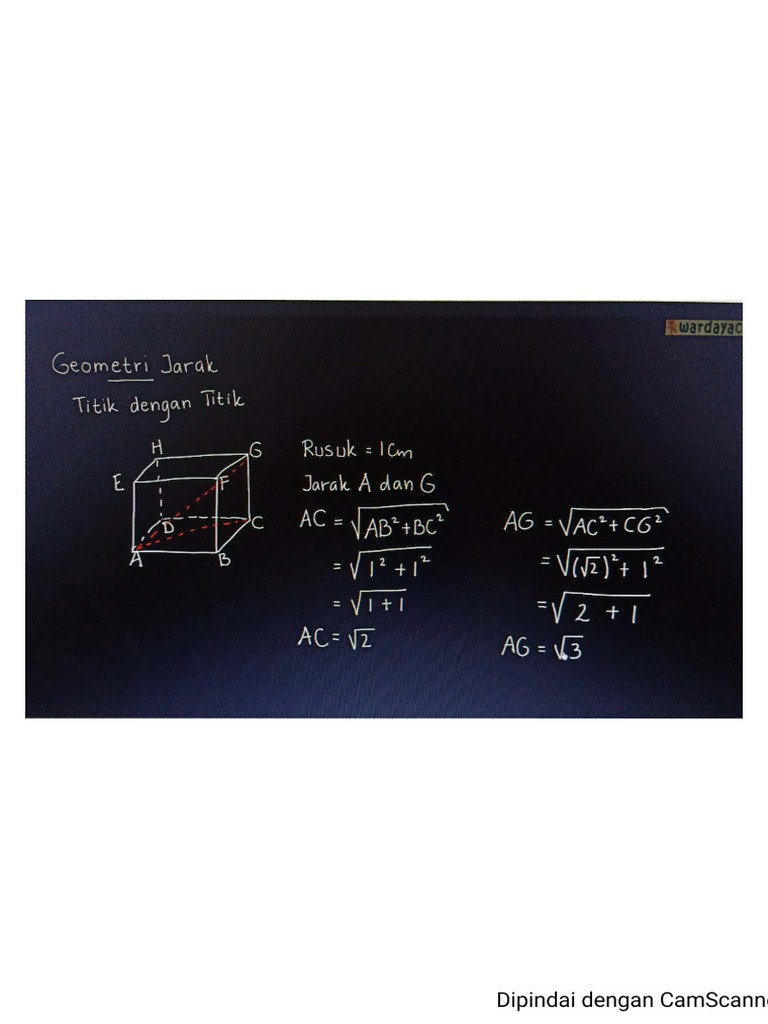 wardayac
Geometri Jarak
Titik dengan Titik
H
G
E
F
D
C
A
B
Rusuk = 1cm
Jarak A dan G
AC = √AB²+BC²
= √1² + 1²
= √1 + 1
AC = √2
AG = √AC²+CG²
= √(√2)² + 1²
= √2 + 1
AG = √3
Dipindai dengan CamScanne